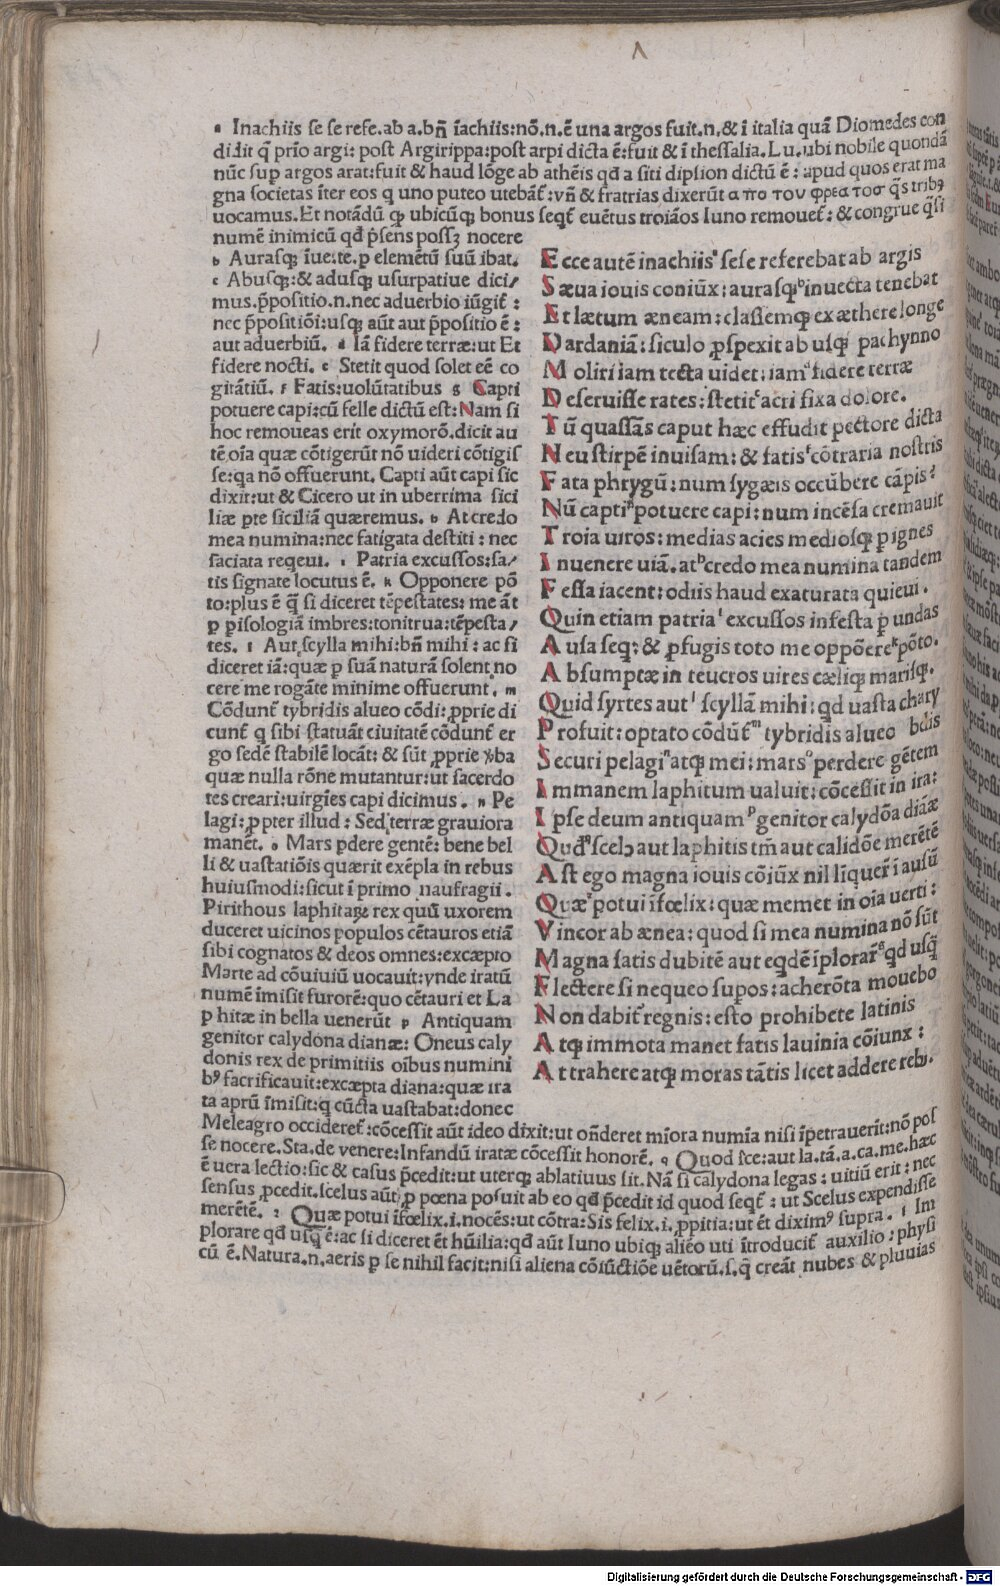 a Inachiis se se refe.ab a.bñ īachiis:nõ.n.ē una argos fuit.n.& ī italia quã Diomedes con
didit q̃ prīo argi: post Argirippa:post arpi dicta ē:fuit & ī thessalia.Lu.ubi nobile quondã
nũc sup argos arat:fuit & haud lõge ab athēis qđ a siti dipsion dictũ ē : apud quos erat ma
gna societas īter eos q uno puteo utebãt̃ :vñ & fratrias dixerũt α πο του φρεα τοσ q̃s tribꝫ
uocamus.Et notãdũ ꝙ ubicũqꝫ bonus seqt̃ euētus troiãos Iuno remouet̃ : & congrue q̃si
numē inimicũ qđ p̃sens possꝫ nocere
b Aurasqꝫ īue:te.p elemētũ suũ ibat.
c Abusqꝫ:& adusqꝫ usurpatiue dici/
mus.p̃positio.n.nec aduerbio iũgit̃ :
nec p̃positiõi:usqꝫ aũt aut p̃positio ē :
aut aduerbiũ. d Iã sidere terræ:ut Et
sidere nocti. e Stetit quod solet eē co
gitãtiũ. f Fatis:uolũtatibus g Capti
potuere capi:cũ felle dictũ est:Nam si
hoc remoueas erit oxymorõ.dicit au
tē oīa quæ cõtigerũt nõ uideri cõtigis
se:qa nõ offuerunt. Capti aũt capi sic
dixit:ut & Cicero ut in uberrima sici
liæ pte siciliã quæremus. h At credo
mea numina:nec fatigata destiti : nec
saciata reqeui. i Patria excussos:sa/
tis signate locutus ē. k Opponere põ
to:plus ē q̃ si diceret tēpestates: me ãt
p pisologiã imbres:tonitrua:tēpesta/
tes. l Aut scylla mihi:bñ mihi : ac si
diceret iã:quæ p suã naturã solent no
cere me rogãte minime offuerunt. m
Cõdunt̃ tybridis alueo cõdi:ꝓprie di
cunt̃ q sibi statuãt ciuitatē cõdunt̃ er
go sedē stabilē locãt: & sũt ꝓprie ỹba
quæ nulla rõne mutantur:ut sacerdo
tes creari:uirgīes capi dicimus . n Pe
lagi:ꝓpter illud : Sed terræ grauiora
manēt. o Mars pdere gentē: bene bel
li & uastatiõis quærit exēpla in rebus
huiusmodi:sicut ī primo naufragii.
Pirithous laphitaꝝ rex quũ uxorem
duceret uicinos populos cētauros etiã
sibi cognatos & deos omnes:excæpto
Marte ad cõuiuiũ uocauit:ynde iratũ
numē īmisit furorē:quo cētauri et La
p hitæ in bella uenerũt p Antiquam
genitor calydona dianæ: Oneus caly
donis rex de primitiis oībus numini
bꝰ sacrificauit:excæpta diana:quæ ira
ta aprũ īmisit:q cũcta uastabat:donec
Ecce autē inachiis a sese referebat ab argis
Sæua iouis coniũx: aurasqꝫ b inuecta tenebat
Et lætum æneam:classemqꝫ ex æthere longe
Dardaniã: siculo ꝓspexit ab usqꝫ c pachynno
Moliri iam tecta uidet: iam d sidere terræ
Deseruisse rates: stetit e acri fixa dolore.
Tũ quassãs caput hæc effudit pectore dicta
Neu stirpē inuisam: & fatis f cõtraria nostris
Fata phrygũ: num sygæis occũbere cãpis?
Nũ capti g potuere capi: num incēsa cremauit
Troia uiros: medias acies mediosqꝫ p ignes
Inuenere uiã. at h credo mea numina tandem
Fessa iacent: odiis haud exaturata quieui.
Quin etiam patria i excussos infesta p undas
Ausa seqꝫ: & ꝓfugis toto me oppõere k põto.
Absumptæ in teucros uires cæliqꝫ marisqꝫ.
Quid syrtes aut l scyllã mihi: qđ uasta chary
Profuit: optato cõdũt̃ m tybridis alueo bdis
Securi pelagi n atqꝫ mei: mars o perdere gētem
Immanem laphitum ualuit: cõcessit in ira:
Ipse deum antiquam p genitor calydõa diãæ
Quđ q scelꝰ aut laphitis tm̃ aut calidõe merētē
Ast ego magna iouis cõiũx nil līquer̃ ī ausũ
Quæ r potui īfœlix: quæ memet in oīa uerti :
Vincor ab ænea: quod si mea numina nõ sũt
Magna satis dubitē aut eqđē īplorar̃ s qđ usq̃
Flectere si nequeo supos: acherõta mouebo
Non dabit̃ regnis: esto prohibete latinis
Atqꝫ immota manet fatis lauinia cõiunx :
At trahere atqꝫ moras tãtis licet addere rebꝫ.
Meleagro occideret̃ :cõcessit aũt ideo dixit:ut oñderet mīora numīa nisi īpetrauerīt:nõ pos
se nocere.Sta.de venere:Infandũ iratæ cõcessit honorē. q Quod sce:aut la.tã.a.ca.me.hæc
ē uera lectio:sic & casus p̃cedit:ut uterqꝫ ablatiuus sit. Nã si calydona legas : uitiũ erit : nec
sensus ꝓcedit.scelus aũt ꝓ pœna posuit ab eo qđ p̃cedit id quod seqt̃ : ut Scelus expendisse
merētē. r Quæ potui īfœlix.i.nocēs:ut cõtra:Sis felix.i.ꝓpitia:ut ēt diximꝰ supra. s Im
plorare qđ usq̃ ē:ac si diceret ēt hũilia:qđ aũt Iuno ubiqꝫ aliēo uti ītroducit̃ auxilio : physi
cũ ē.Natura.n.aeris p se nihil facit:nisi aliena cõiũctiõe uētorũ.s.q̃ creãt nubes & pluuias
Digitalisierung gefördert durch die Deutsche Forschungsgemeinschaft - DFG